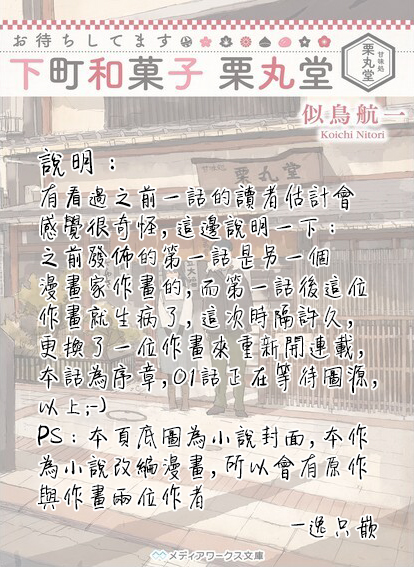 お待ちしてます
下町和菓子 栗丸堂
甘味処
栗丸堂
似鳥航一
Koichi Nitori
栗丸堂
說明：
有看過之前一話的讀者估計會
感覺很奇怪,這邊說明一下：
之前發佈的第一話是另一個
漫畫家作畫的,而第一話後這位
作畫就生病了,這次時隔許久,
更換了一位作畫來重新開連載,
本話為序章,01話正在等待圖源,
以上;-)
PS：本頁底圖為小說封面,本作
為小說改編漫畫,所以會有原作
與作畫兩位作者
一逸只歡
メディアワークス文庫